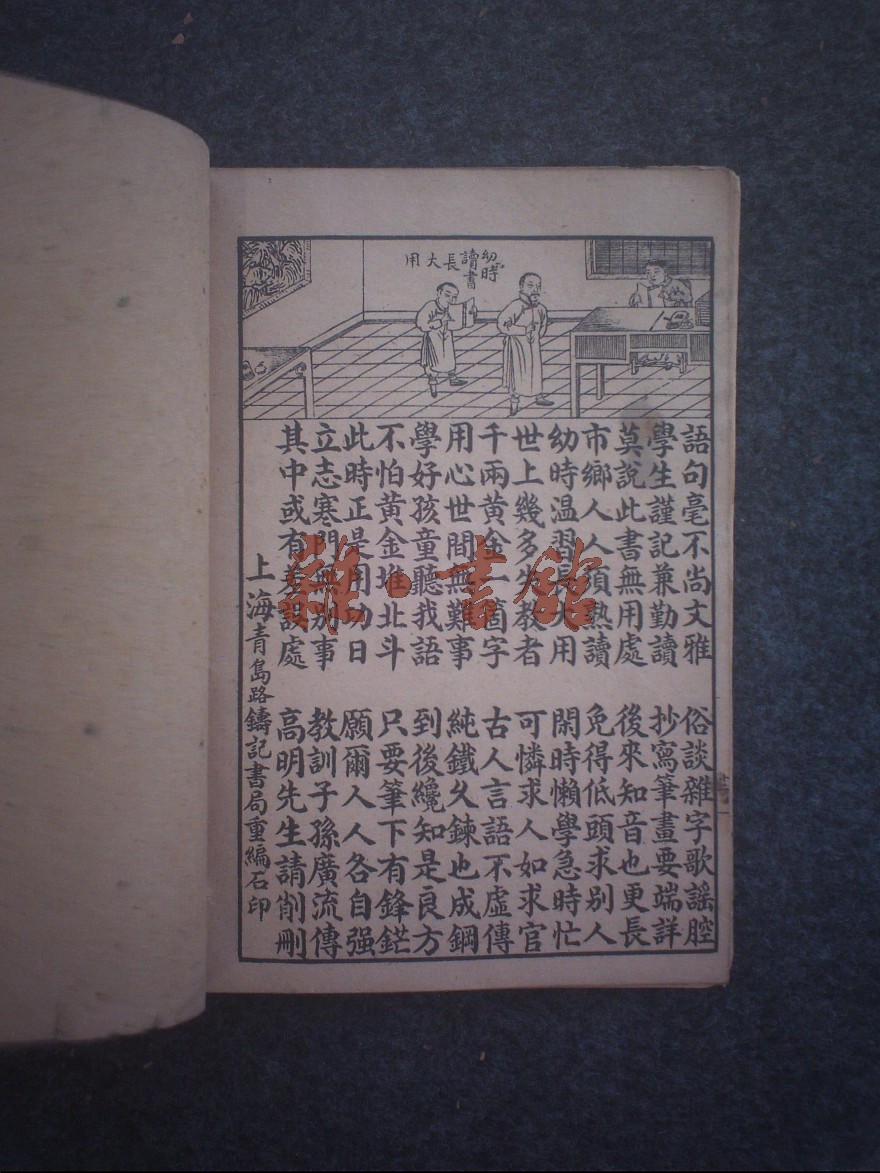 幼時讀書長大用
語句毫不尚文雅 俗談雜字歌謡腔
學生謹記兼勤讀 抄寫筆畫要端詳
莫說此書無用處 後來知音也更長
市鄉人人須熟讀 免得低頭求别人
幼時温習長大用 閑時懶學急時忙
世上幾多失教者 可憐求人如求官
千兩黃金一箇字 古人言語不虛傳
用心世間無難事 純鐵久鍊也成鋼
學好孩童聽我語 到後纔知是良方
不怕黃金堆北斗 只要筆下有鋒鋩
此時正是用功日 願爾人人各自强
立志寒門無别事 教訓子孫廣流傳
其中或有差誤處 高明先生請削刪
上海青島路鑄記書局重編石印
雜·書館